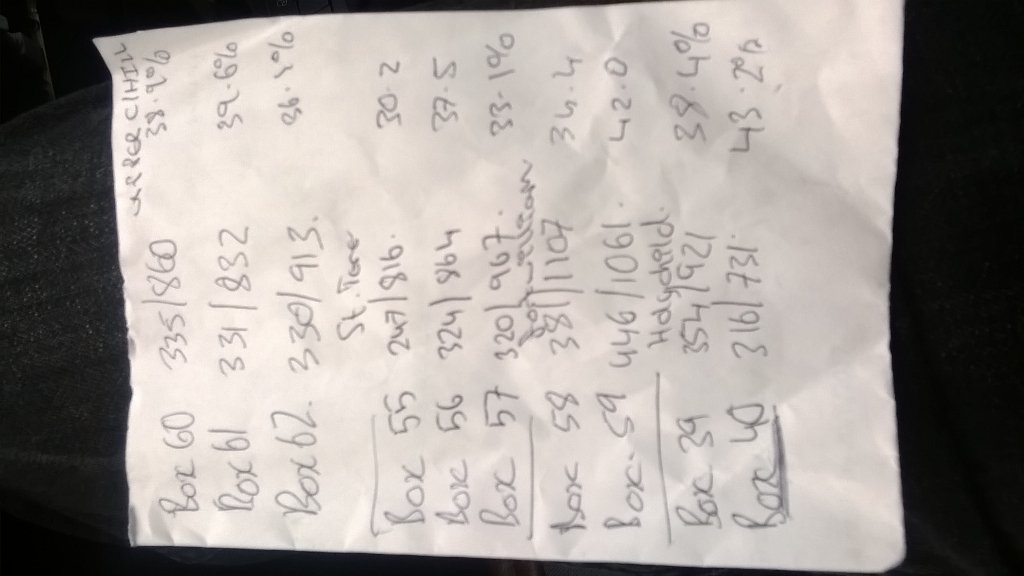 Box 60 335/860 38.9%
Box 61 331/832 39.6%
Box 62. 330/913. 36.1%
St.
Box 55 247/816. 30.2
Box 56 324/864 37.5
Box 57 320/967. 33.1%
Box 58 381/1107 34.4
Box 59 446/1061. 42.0
Holychild.
Box 39 354/921 38.4%
Box 40 316/731. 43.2%